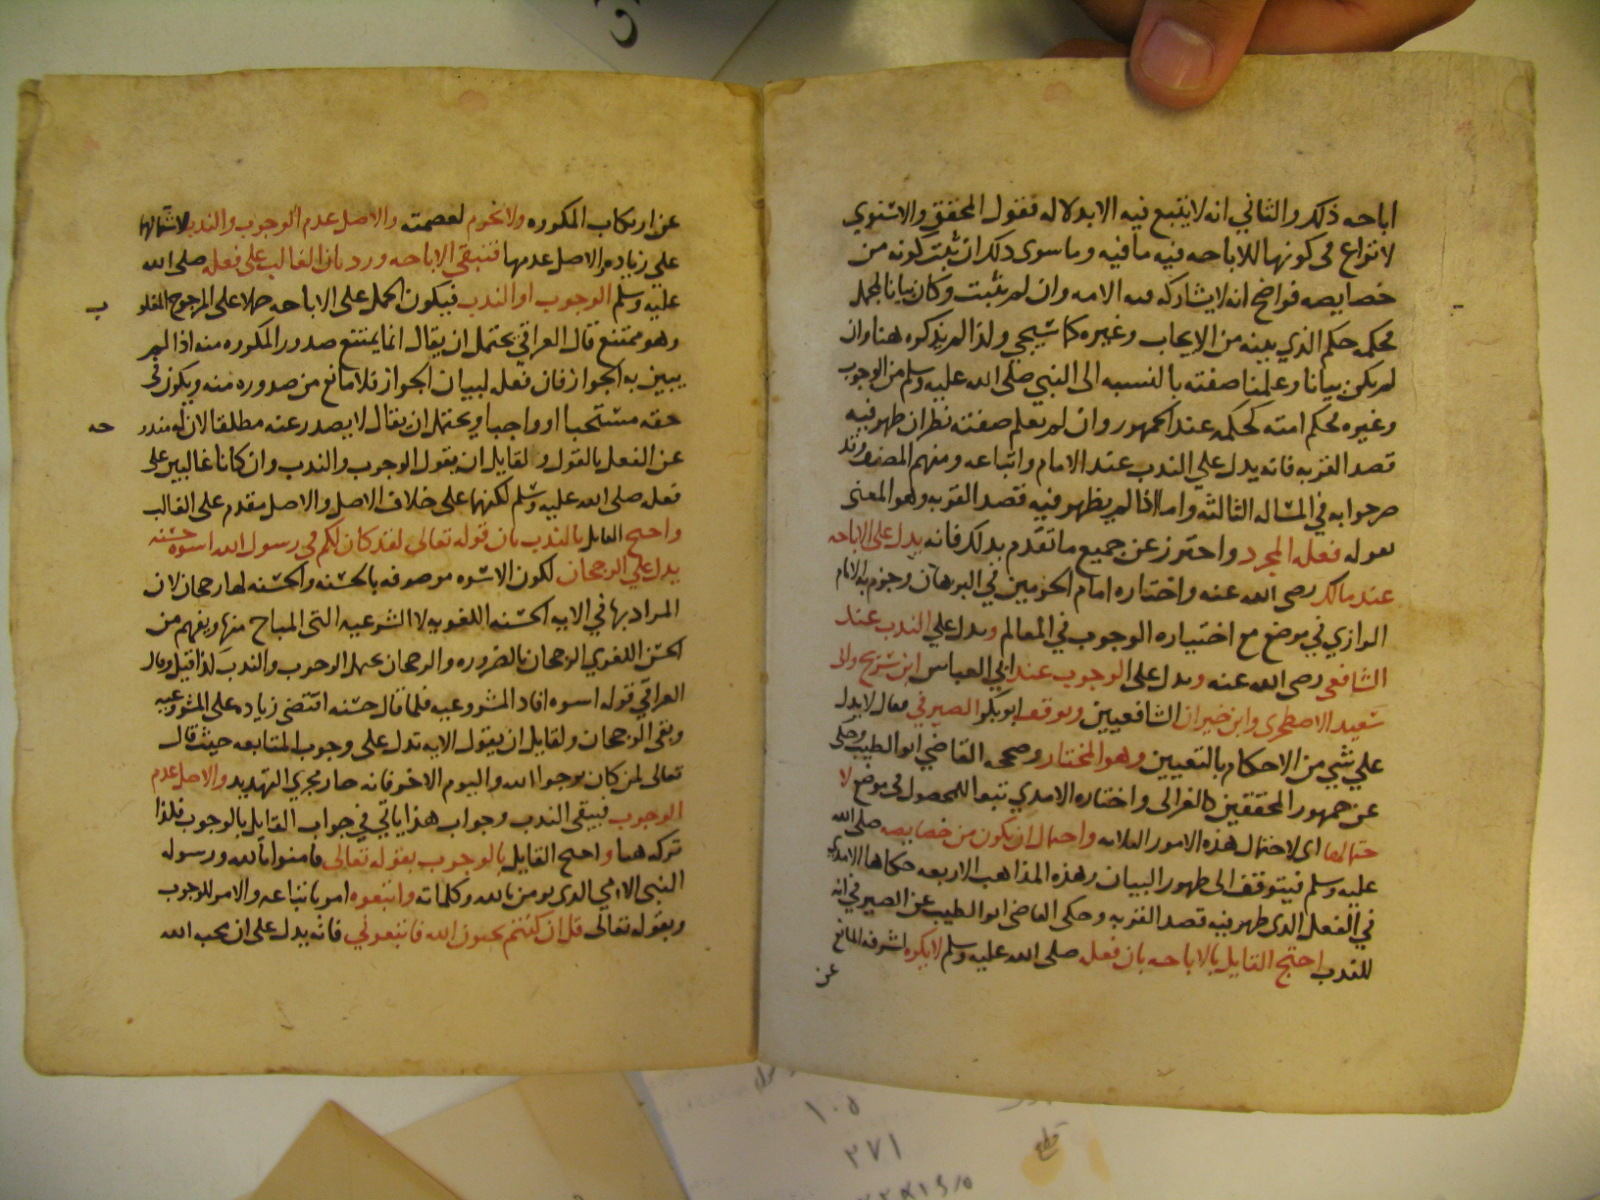 اباحه ذلك والثاني انه لا يتبع فيه الا بدلاله فقول المحقق والاسنوي
لا نزاع في كونها للاباحه فيه ما فيه وما سوى ذلك ان ثبت كونه من
خصايصه فواضح انه لا يشاركه فيه الامه وان لم يثبت وكان بيانا لمجمل
فحكمه حكم الذي بينه من الايجاب وغيره كما سيجي ولذا لم يذكره هنا وان
لم يكن بيانا وعلمنا صفته بالنسبه الى النبي صلى الله عليه وسلم من الوجوب
وغيره فحكم امته كحكمه عند الجمهور وان لم نعلم صفته نظر ان ظهر فيه
قصد القربه فانه يدل على الندب عند الامام واتباعه ومنهم المصنف وقد
صرح به في المساله الثالثه واما اذا لم يظهر فيه قصد القربه وهو المعني
بقوله فعله المجرد واحترز عن جميع ما تقدم بذلك فانه يدل على الاباحه
عند مالك رضى الله عنه واختاره امام الحرمين في البرهان وجزم به الامام
الرازي في موضع مع اختياره الوجوب في المعالم ويدل على الندب عند
الشافعى رضى الله عنه ويدل على الوجوب عند ابي العباس ابن سريج وابى
سعيد الاصطخرى وابن خيران الشافعيين وتوقف ابو بكر الصيرفي فقال لا يدل
على شي من الاحكام بالتعيين وهو المختار وصححه القاضي ابو الطيب وحكى
عن جمهور المحققين كالغزالى واختاره الامدي تبعا للمحصول في موضع لا
حتمالها اى لاحتمال هذه الامور الثلاثه واحتمال ان يكون من خصايصه صلى الله
عليه وسلم فيتوقف الى ظهور البيان وهذه المذاهب الاربعه حكاها الامدي
في الفعل الذى ظهر فيه قصد القربه وحكى القاضى ابو الطيب عن الصيرفي انه
للندب احتج القايل بالاباحه بان فعله صلى الله عليه وسلم لا يكره لشرفه المانع
عن
عن ارتكاب المكروه ولا يحرم لعصمته والاصل عدم الوجوب والندب لاشتمالها
على زياده والاصل عدمها فتبقى الاباحه ورد بان الغالب على فعله صلى الله
عليه وسلم الوجوب او الندب فيكون الحمل على الاباحه حملا على المرجوح المغلو
ب
وهو ممتنع قال العراقي يحتمل ان يقال انما يمتنع صدور المكروه منه اذا لم
يبين به الجواز فان فعله لبيان الجواز فلا مانع من صدوره منه ويكون في
حقه مستحبا او واجبا ويحتمل ان يقال لا يصدر عنه مطلقا لان له مندو
حه
عن الفعل بالقول ولقايل ان يقول الوجوب والندب وان كانا غالبين على
فعله صلى الله عليه وسلم لكنهما على خلاف الاصل والاصل مقدم على الغالب
واحتج القايل بالندب بان قوله تعالى لقد كان لكم في رسول الله اسوة حسنه
يدل على الرجحان لكون الاسوه موصوفه بالحسنه والحسنه لها رجحان لان
المراد بها في الايه الحسنه اللغويه لا الشرعيه التى المباح منها ويفهم من
الحسن اللغوي الرجحان بالضروره والرجحان يحتمل الوجوب والندب لذا قيل وقال
العراقي قوله اسوه افاد المشروعيه فلما قال حسنه اقتضى زياده على المشروعيه
وبقى الرجحان ولقايل ان يقول الايه تدل على وجوب المتابعه حيث قال
تعالى لمن كان يرجوا الله واليوم الاخر فانه جار مجرى التهديد والاصل عدم
الوجوب فيبقى الندب وجواب هذا ياتي في جواب القايل بالوجوب فلذا
تركه هنا واحتج القايل بالوجوب بقوله تعالى فامنوا بالله ورسوله
النبى الامي الذى يومن بالله وكلماته واتبعوه امر باتباعه والامر للوجوب
وبقوله تعالى قل ان كنتم تحبون الله فاتبعوني فانه يدل على ان محبه الله
١٠٥
٢٧١